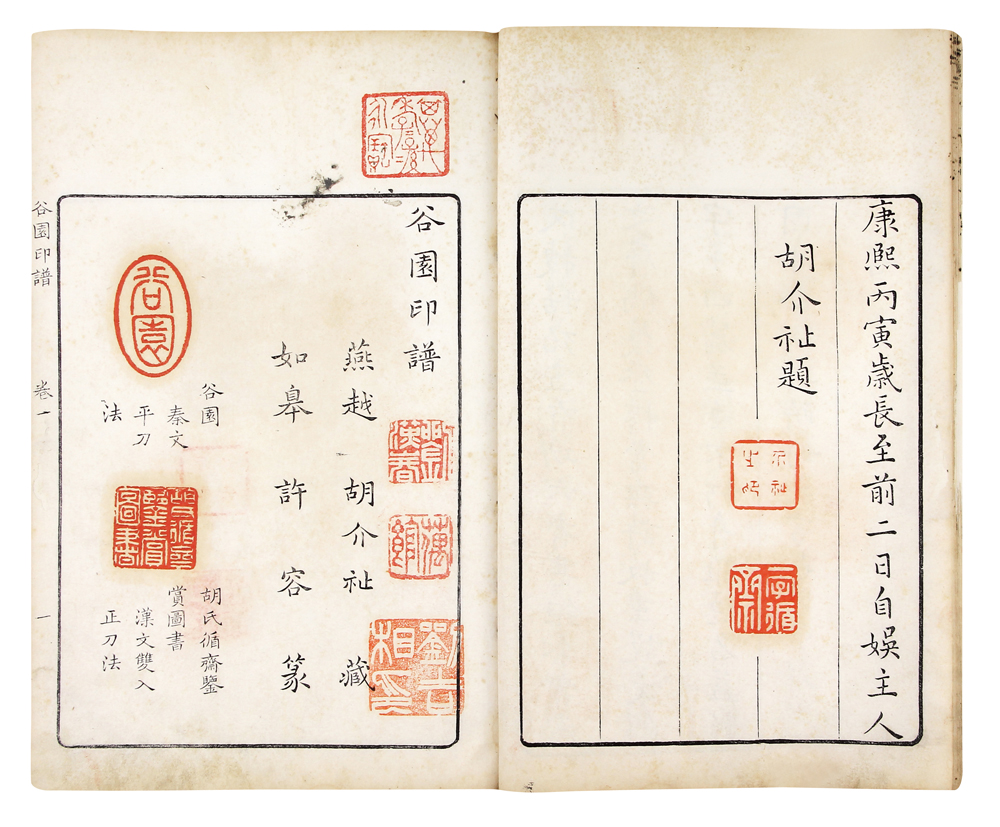 康熙丙寅歲長至前二日自娛主人
胡介祉題
谷園印譜
燕越 胡介祉 藏
如皋 許容 篆
谷園
谷園
秦文
平刀
法
胡氏循齋鑒
賞圖書
漢文雙入
正刀法
谷園印譜
卷一
一